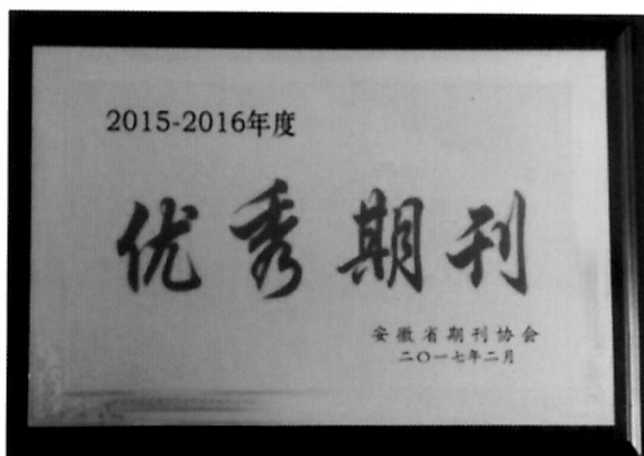 2015-2016年度
优秀期刊
安徽省期刊协会
二〇一七年二月